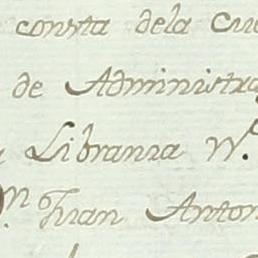 consta dela Cue
de Administra
Libranza N.º
D.n Juan Anton